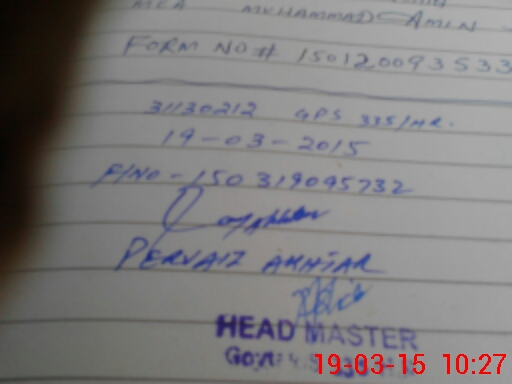 MUHAMMAD AMIN
FORM NO# 150120093533
31130212 GPS 335/HR.
19-03-2015
F/NO-150319095732
PERVAIZ AKHTAR
HEAD MASTER
Govt
19-03-15 10:27